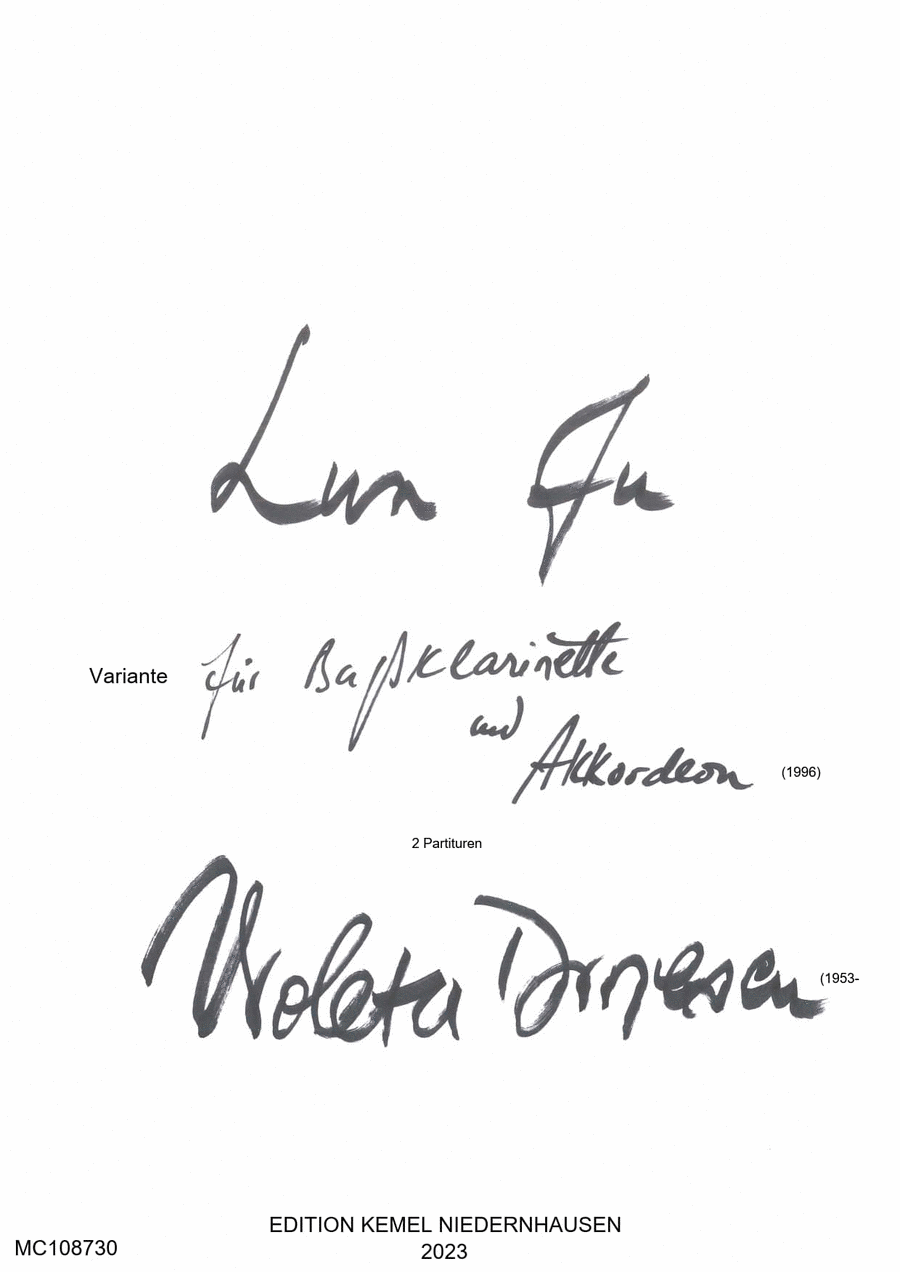 Lun Fu
Variante für Baßklarinette
und
Akkordeon (1996)
2 Partituren
Violeta Dinescu (1953-
EDITION KEMEL NIEDERNHAUSEN
MC108730 2023